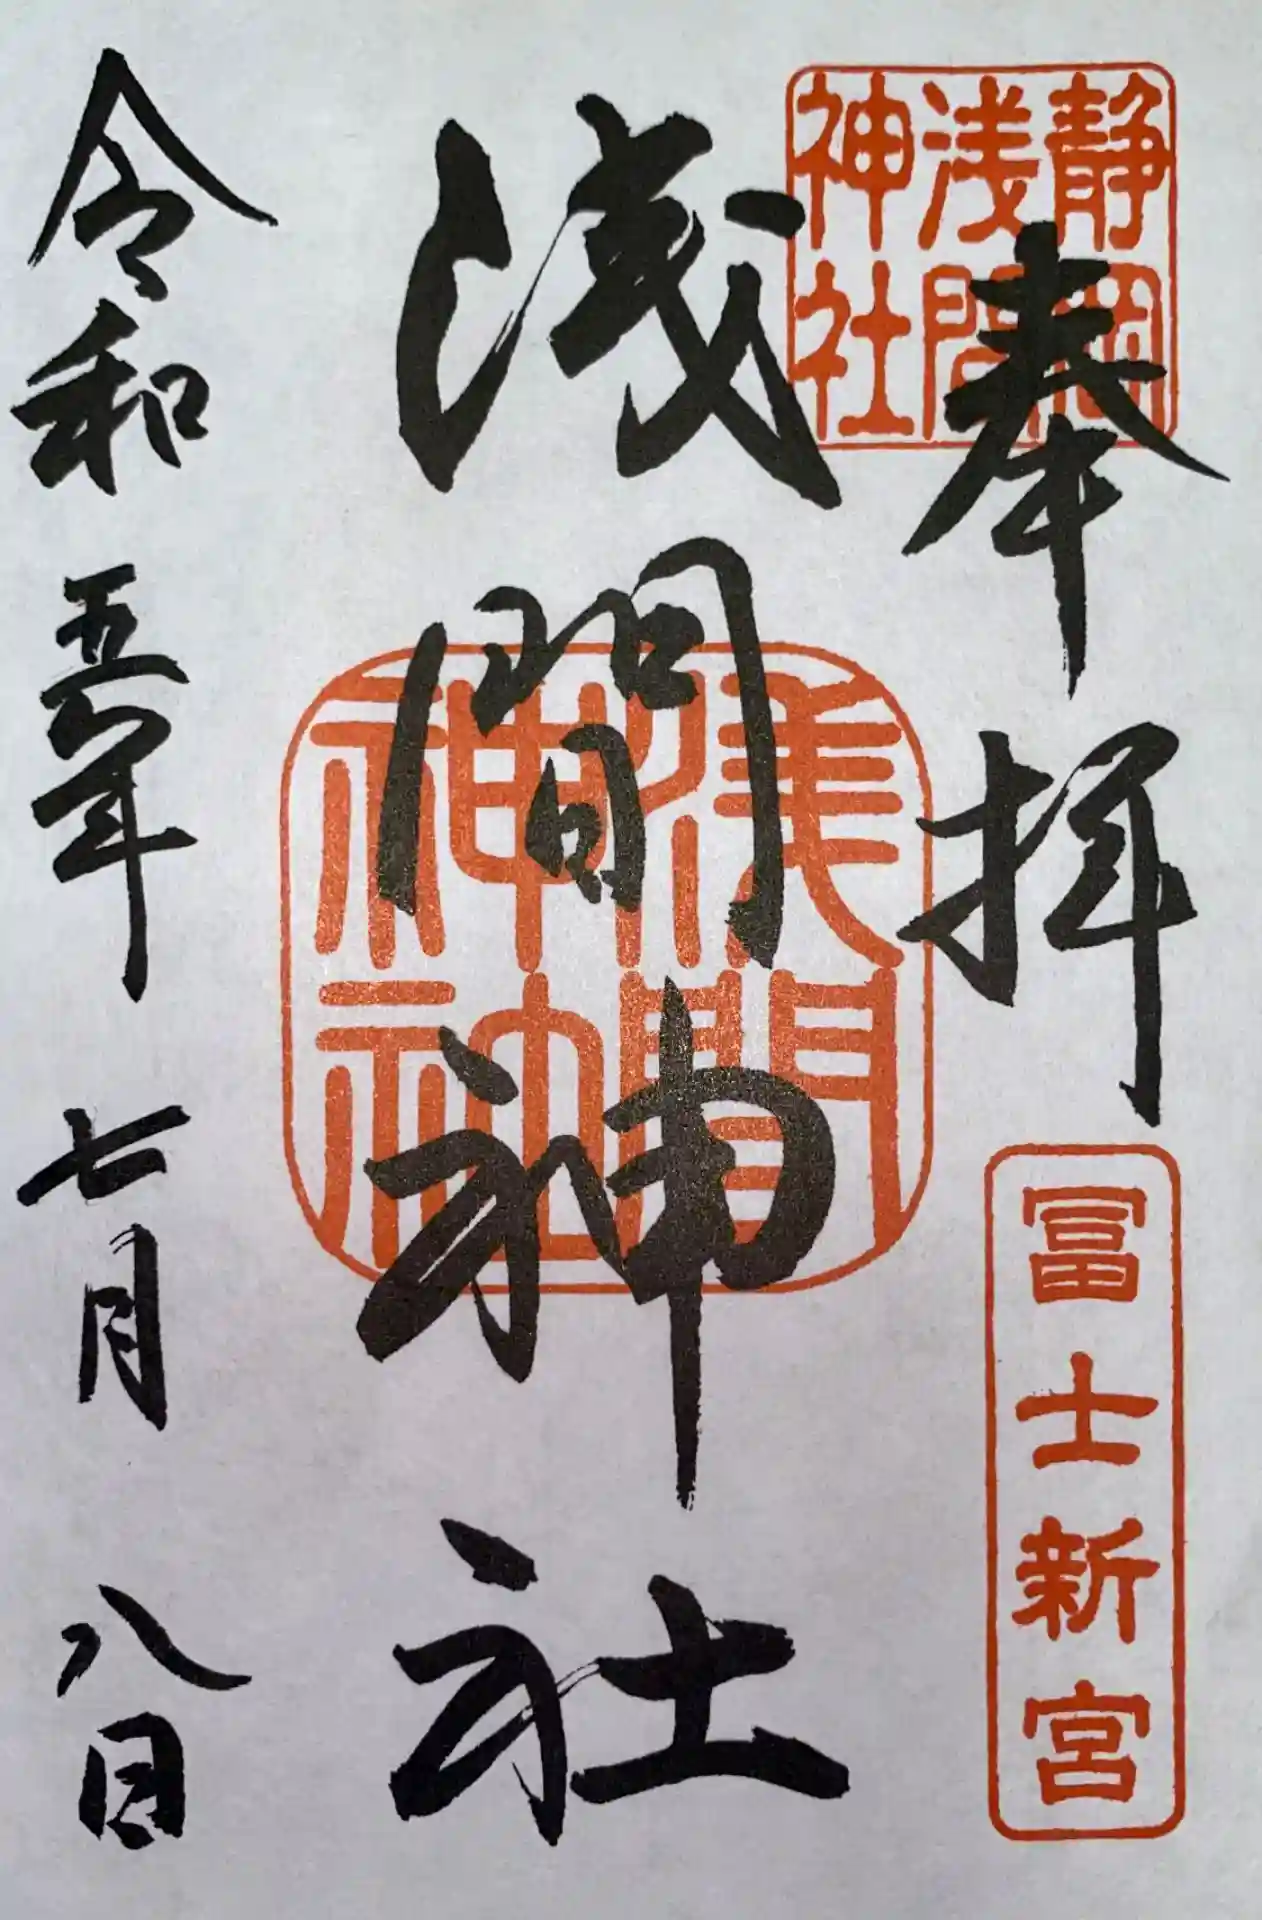 奉拝
静岡
浅間
神社
富士新宮
浅間神社
浅間
神社
令和五年七月八日